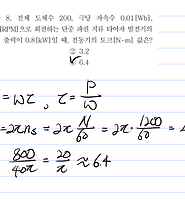 · 8, 전체 도체수 200, 극당 자속수 0.01[Wb],
[RPM]으로 회전하는 단중 파권 직류 타여자 발전기의
출력이 0.8[kW]일 때, 전동기의 토크[N·m] 값은?
② 3.2
✓ 6.4
= ωτ , τ = P/ω
= 2πns = 2π N/60 = 2π · 1200/60
800/40π = 20/π ≈ 6.4